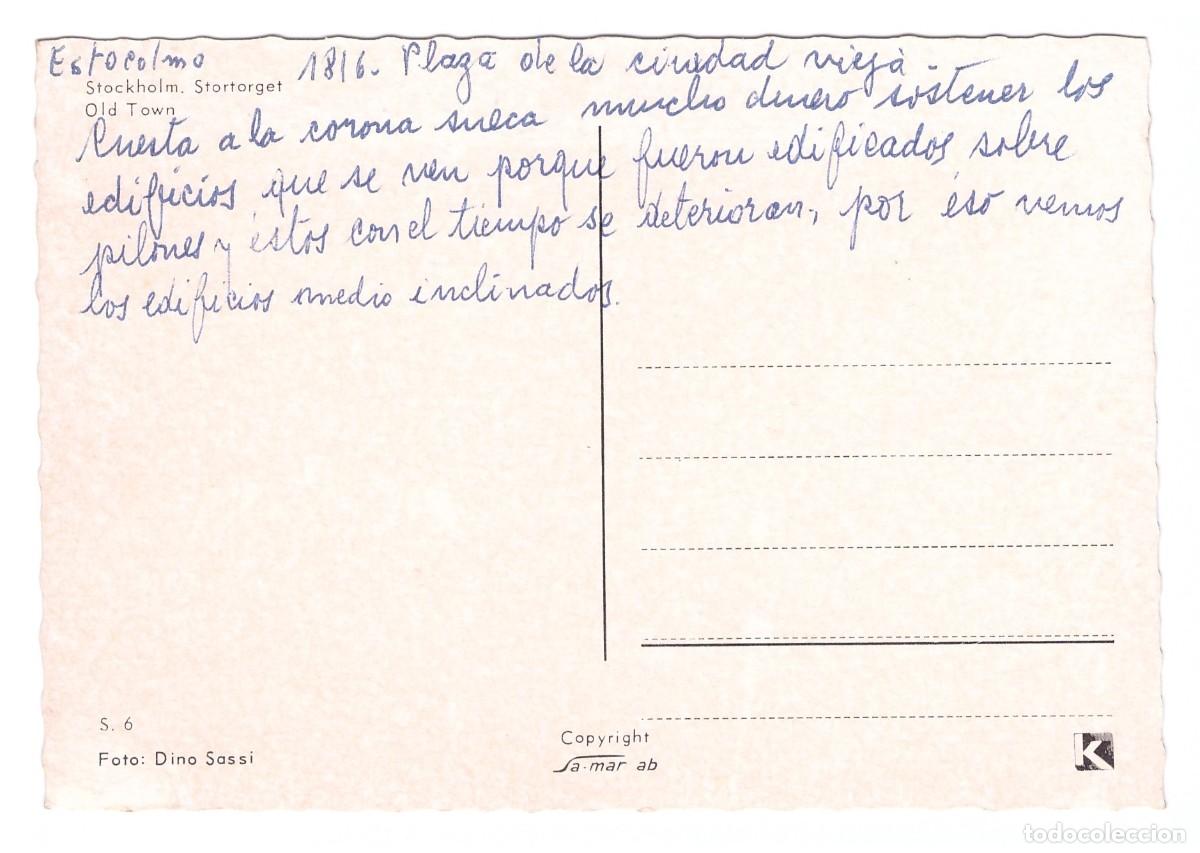 Estocolmo 1816. Plaza de la ciudad vieja.
Stockholm. Stortorget
Old Town
Cuesta a la corona sueca mucho dinero sostener los
edificios que se ven porque fueron edificados sobre
pilones y éstos con el tiempo se deterioran, por éso vemos
los edificios medio inclinados.
S. 6
Foto: Dino Sassi
Copyright
Sa-mar ab
K
todocoleccion